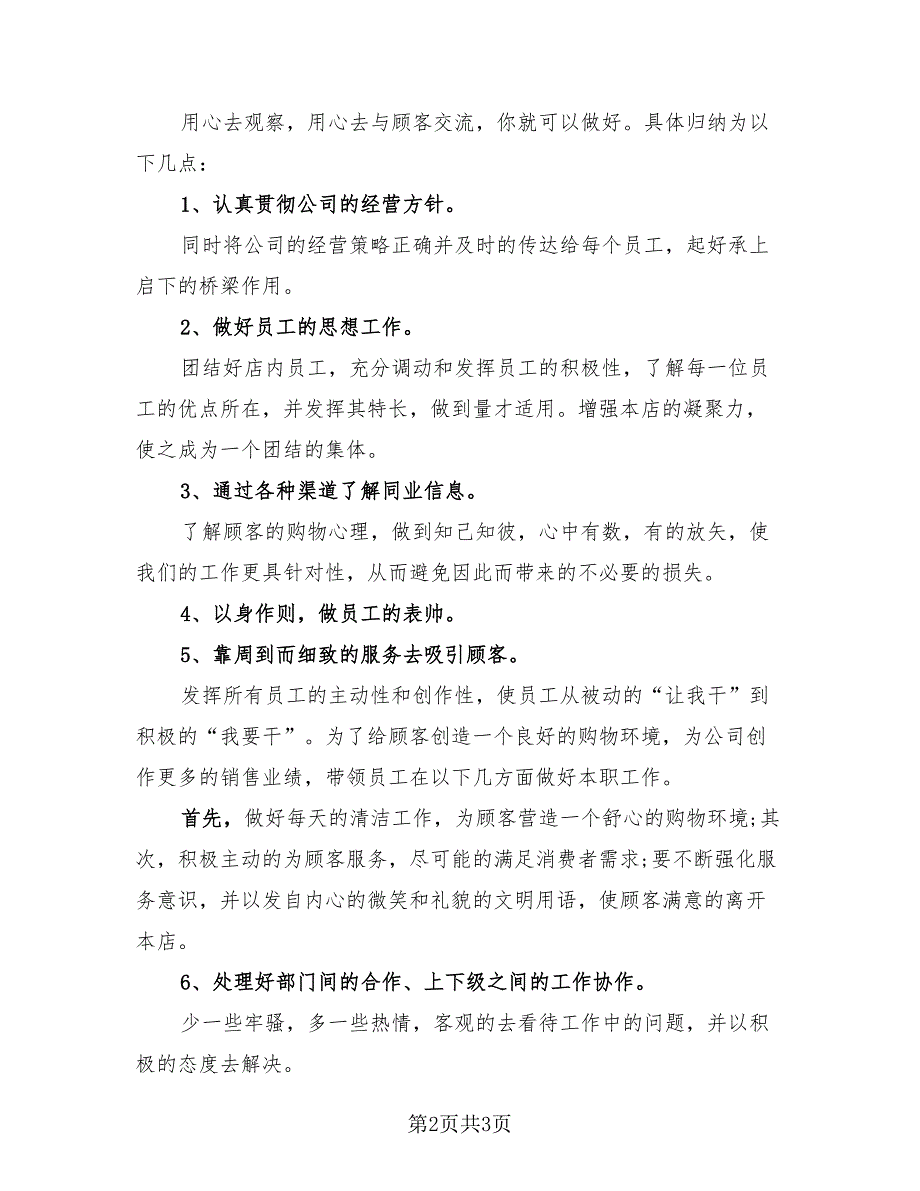 用心去观察，用心去与顾客交流，你就可以做好。具体归纳为以
下几点：
1、认真贯彻公司的经营方针。
同时将公司的经营策略正确并及时的传达给每个员工，起好承上
启下的桥梁作用。
2、做好员工的思想工作。
团结好店内员工，充分调动和发挥员工的积极性，了解每一位员
工的优点所在，并发挥其特长，做到量才适用。增强本店的凝聚力，
使之成为一个团结的集体。
3、通过各种渠道了解同业信息。
了解顾客的购物心理，做到知己知彼，心中有数，有的放矢，使
我们的工作更具针对性，从而避免因此而带来的不必要的损失。
4、以身作则，做员工的表帅。
5、靠周到而细致的服务去吸引顾客。
发挥所有员工的主动性和创作性，使员工从被动的“让我干”到
积极的“我要干”。为了给顾客创造一个良好的购物环境，为公司创
作更多的销售业绩，带领员工在以下几方面做好本职工作。
首先，做好每天的清洁工作，为顾客营造一个舒心的购物环境;其
次，积极主动的为顾客服务，尽可能的满足消费者需求;要不断强化服
务意识，并以发自内心的微笑和礼貌的文明用语，使顾客满意的离开
本店。
6、处理好部门间的合作、上下级之间的工作协作。
少一些牢骚，多一些热情，客观的去看待工作中的问题，并以积
极的态度去解决。
第2页共3页